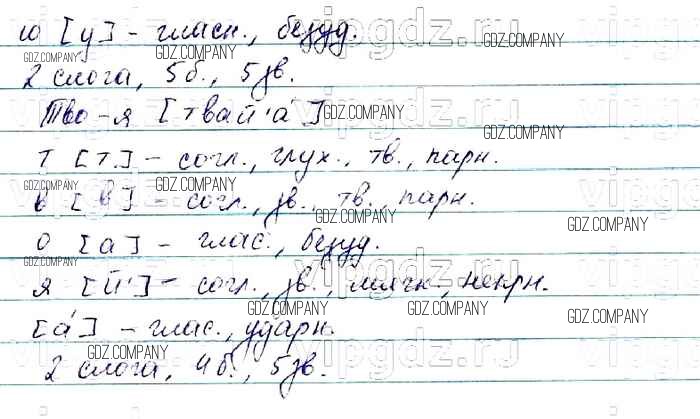 ю [у] - гласн., безуд.
2 слога, 5 б., 5 зв.
Тво-я [твай'а́]
т [т] - согл., глух., тв., парн.
в [в] - согл., зв., тв., парн.
о [а] - глас., безуд.
я [й'] - согл., зв., мягк., непрн.
[а́] - глас., ударн.
2 слога, 4 б., 5 зв.